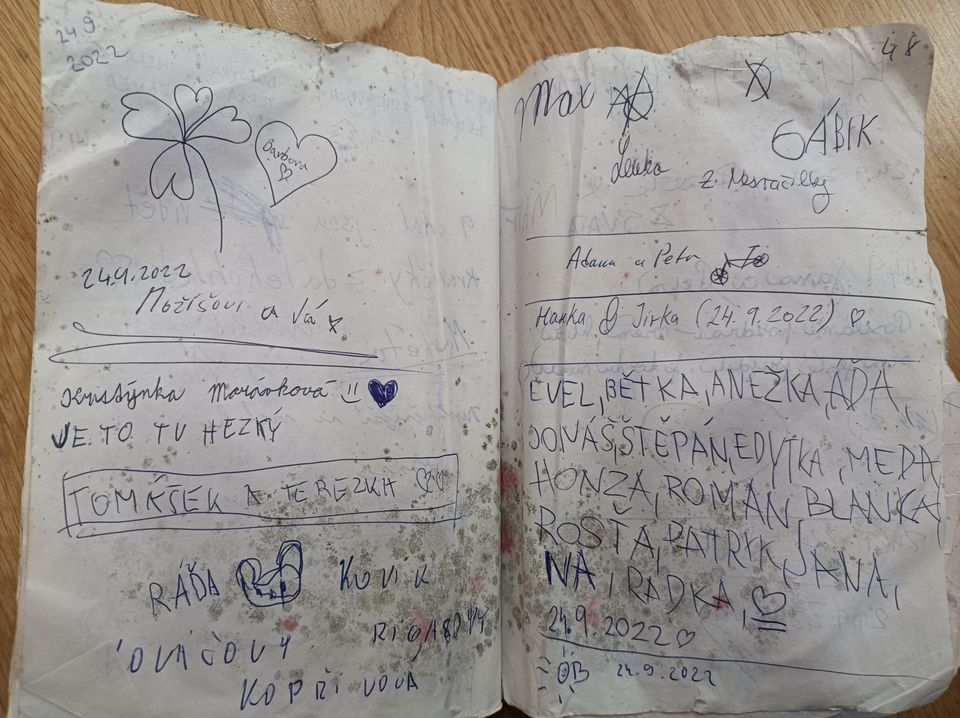 24.9
2022
Barbora
24.9.2022
Možíšovi a
Kristýnka Morávková
JE TO TU HEZKÝ
TOMÁŠEK A TEREZKA
RÁĎA KOVIK
KOPŘIVOVÁ
48
Max
GÁBIK
Lenka
z
Adam a Petr
Hanka Jirka (24.9.2022)
EVEL, BĚTKA, ANEŽKA, AĎA,
JONÁŠ, ŠTĚPÁN, EDYTKA, MEĎA
HONZA, ROMAN, BLANKA
ROSŤA, PATRYK, JANA,
NA, RADKA,
24.9.2022
ÓB 24.9.2022